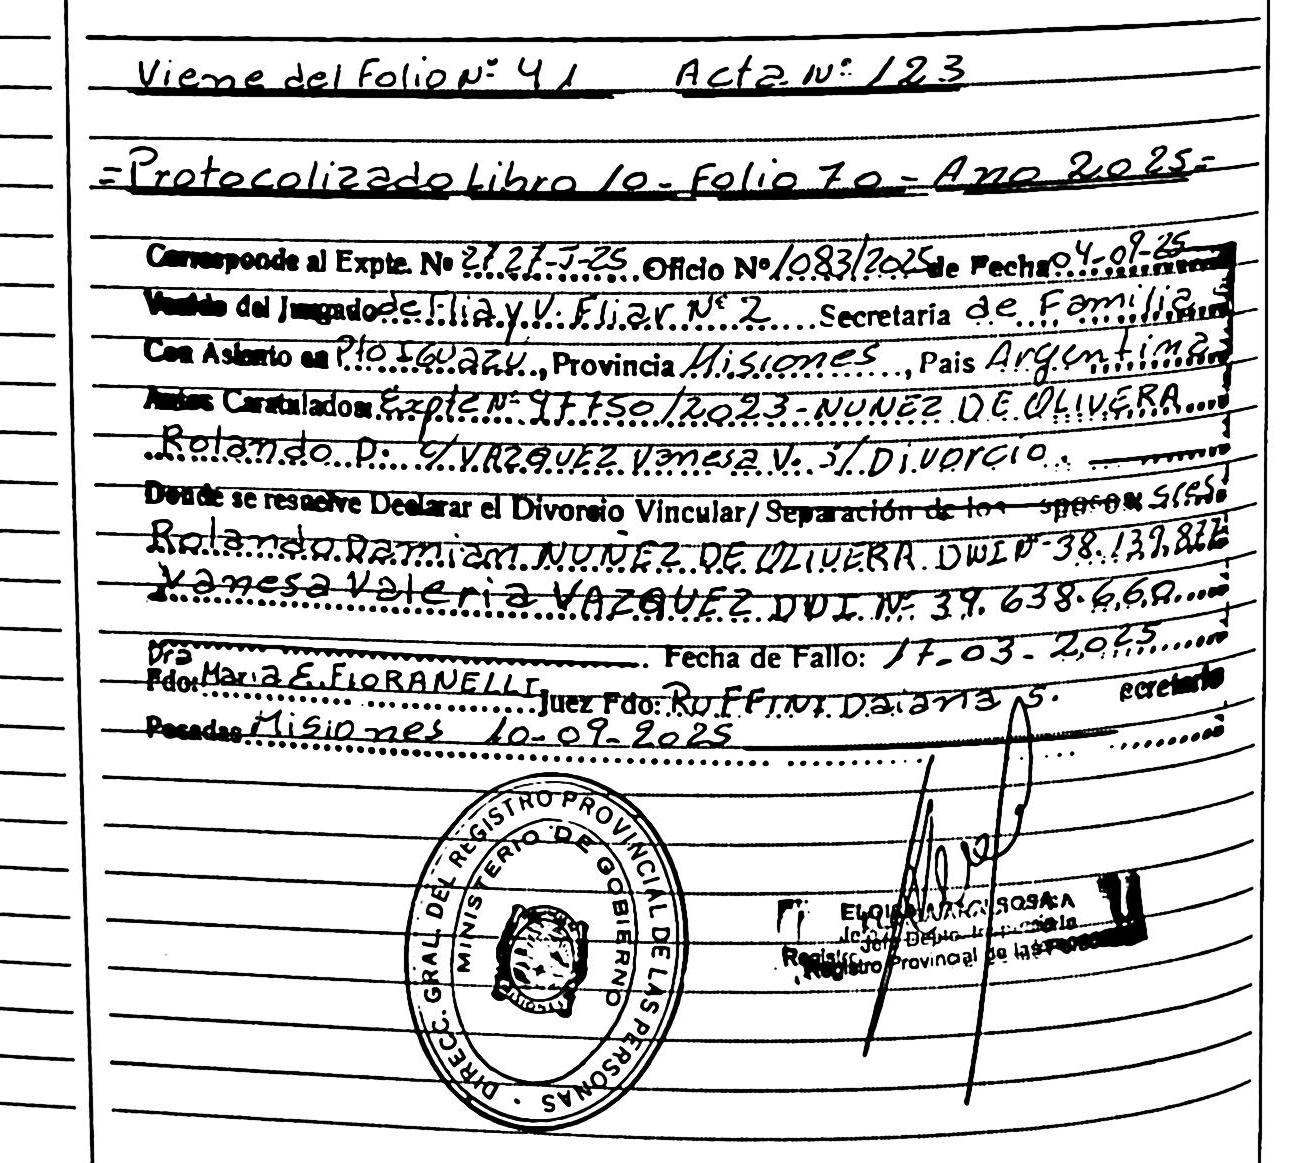 Viene del Folio Nº 41 Acta Nº 123
= Protocolizado Libro 10 - Folio 70 - Ano 2025 =
Corresponde al Expte. Nº 2727-J-25 Oficio Nº 1083/2025 de Fecha 04-09-25
del Juzgado de Flia y V. Fliar Nº 2 Secretaria de Familia
Con Asiento en Pto IGUAZU, Provincia Misiones, Pais Argentina
Autos Caratulados: Expte Nº 97750/2023 - NUNEZ DE OLIVERA
Rolando D. c/ VAZQUEZ Vanesa V. S/ Divorcio.
Donde se resuelve Declarar el Divorcio Vincular/ Separación de los sres
Rolando Damian NUÑEZ DE OLIVERA DNI Nº 38.139.
Vanesa Valeria VAZQUEZ DNI Nº 39.638.660
Fecha de Fallo: 17-03-2025
Dra
Fdo: Maria E. FIORANELLI Juez Fdo: RUFFINI Daiana S. ecretario
Posadas Misiones 10-09-2025
DIRECC. GRAL. DEL REGISTRO PROVINCIAL DE LAS PERSONAS
MINISTERIO DE GOBIERNO
ROSA
Jefe Depto.
Registro Provincial de las